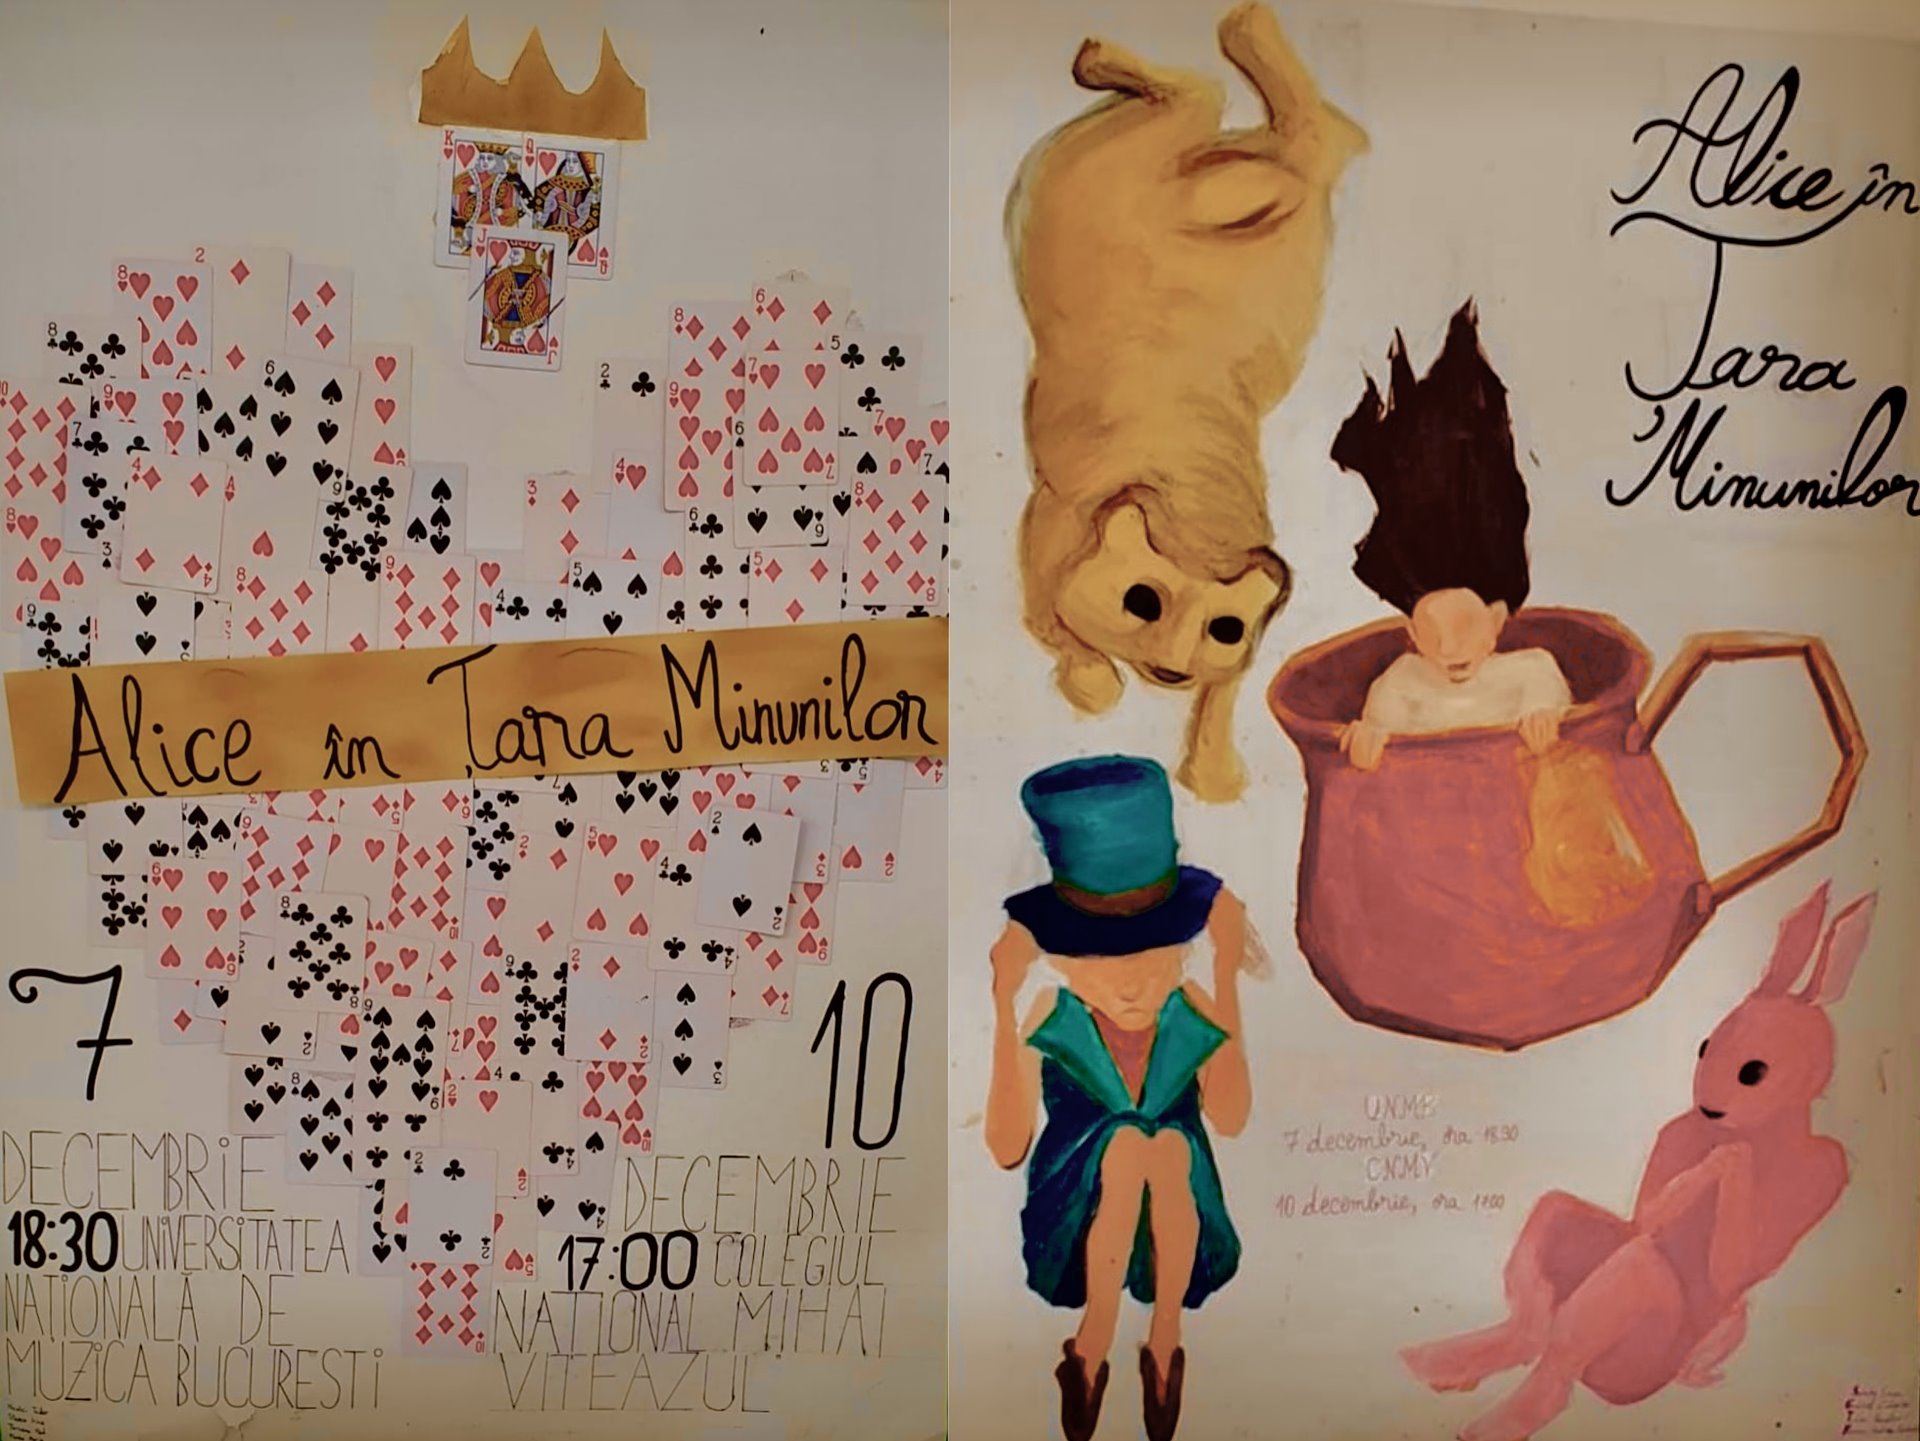 Alice în Țara Minunilor
7
DECEMBRIE
18:30 UNIVERSITATEA
NAȚIONALĂ DE
MUZICA BUCUREȘTI
10
DECEMBRIE
17:00 COLEGIUL
NAȚIONAL MIHAI
VITEAZUL
Alice în
Țara
Minunilor
UNMB
7 decembrie, ora 18:30
CNMV
10 decembrie, ora 17:00